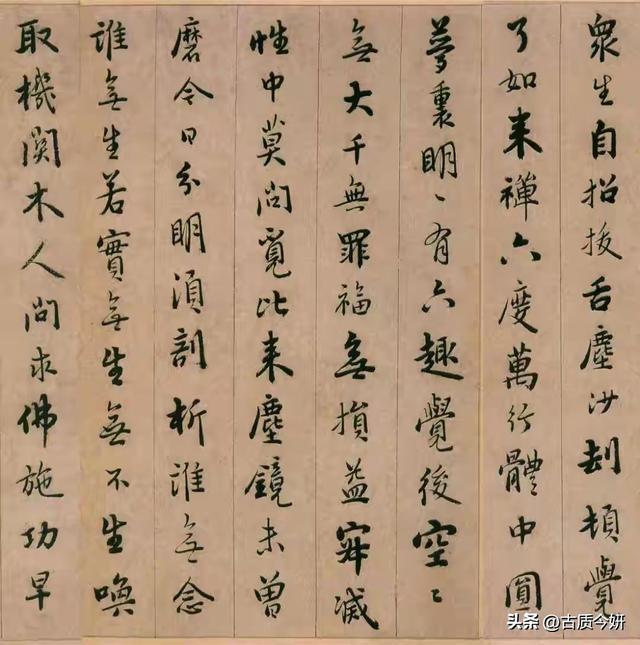 衆生自招拔舌塵沙刼頓覺
了如来禪六度萬行體中圓
夢裏明〻有六趣覺後空〻
無大千無罪福無損益寂滅
性中莫問覓比来塵鏡未曾
磨今日分明須剖析誰無念
誰無生若實無生無不生喚
取機関木人問求佛施功早
头条 @古质今妍